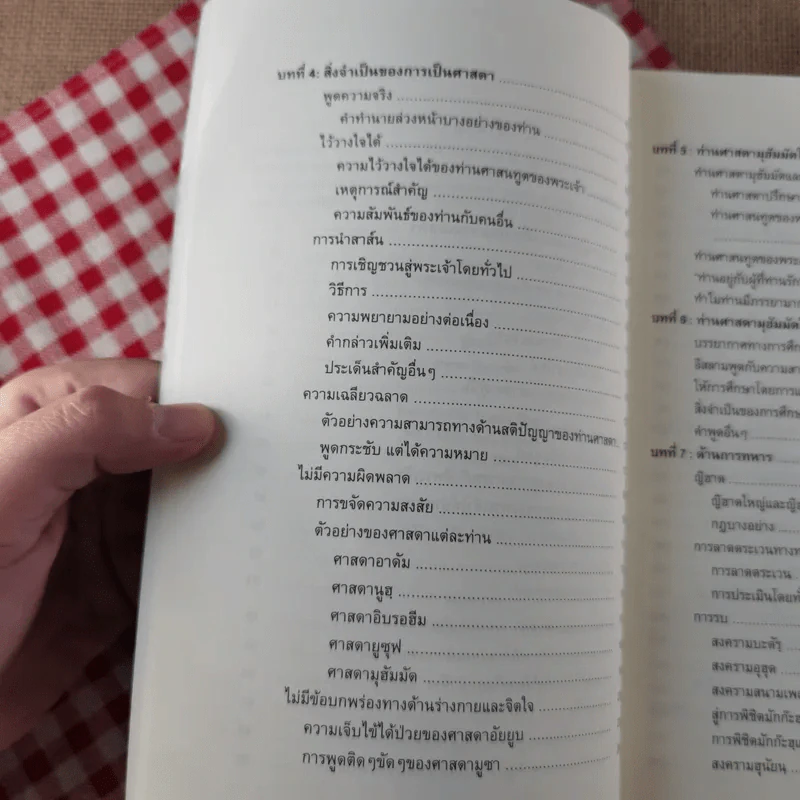 บทที่ 4: สิ่งจำเป็นของการเป็นศาสดา
พูดความจริง
คำทำนายล่วงหน้าบางอย่างของท่าน
ไว้วางใจได้
ความไว้วางใจได้ของท่านศาสนทูตของพระเจ้า
เหตุการณ์สำคัญ
ความสัมพันธ์ของท่านกับคนอื่น
การนำสาส์น
การเชิญชวนสู่พระเจ้าโดยทั่วไป
วิธีการ
ความพยายามอย่างต่อเนื่อง
คำกล่าวเพิ่มเติม
ประเด็นสำคัญอื่นๆ
ความเฉลียวฉลาด
ตัวอย่างความสามารถทางด้านสติปัญญาของท่านศาสดา
พูดกระชับ แต่ได้ความหมาย
ไม่มีความผิดพลาด
การขจัดความสงสัย
ตัวอย่างของศาสดาแต่ละท่าน
ศาสดาอาดัม
ศาสดานูฮฺ
ศาสดาอิบรอฮีม
ศาสดายูซุฟ
ศาสดามุฮัมมัด
ไม่มีข้อบกพร่องทางด้านร่างกายและจิตใจ
ความเจ็บไข้ได้ป่วยของศาสดาอัยยูบ
การพูดติดๆขัดๆของศาสดามูซา
บทที่ 5 : ท่านศาสดามุฮัมมัด
ท่านศาสดามุฮัมมัดและ
ท่านศาสดาปรึกษา
ท่านศาสนทูตของพ
ท่านศาสนทูตของพระ
ท่านอยู่กับผู้ที่ท่านรัก
ทำไมท่านมีภรรยามาก
บทที่ 6 : ท่านศาสดามุฮัมมัด
บรรยากาศทางการศึก
อิสลามพูดกับความสา
ให้การศึกษาโดยการแ
สิ่งจำเป็นของการศึกษา
คำพูดอื่นๆ
บทที่ 7 : ด้านการทหาร
ญิฮาด
ญิฮาดใหญ่และญิฮ
กฎบางอย่าง
การลาดตระเวนทางท
การลาดตระเวน
การประเมินโดยทั่
การรบ
สงครามบะดัรฺ
สงครามอุฮุด
สงครามสนามเพล
สู่การพิชิตมักก๊ะฮฺ
การพิชิตมักก๊ะฮฺแ
สงครามฮุนัยนฺ